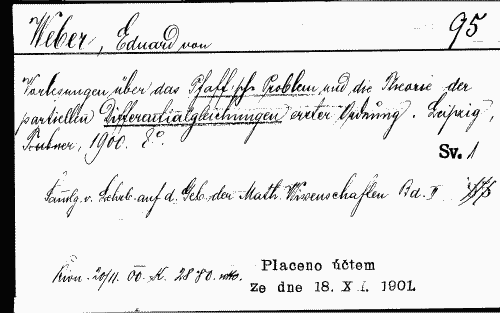 Weber, Eduard von 95
Vorlesungen über das Pfaff'sche Problem und die Theorie der
partiellen Differentialgleichungen erster Ordnung. Leipzig,
Teubner, 1900. 8°.
Sv. 1
v. Lehrb. auf d. Geb. der Math. Wissenschaften Bd. II
20/11. 00. K. 28 80.
Placeno účtem
ze dne 18. XI. 1901.